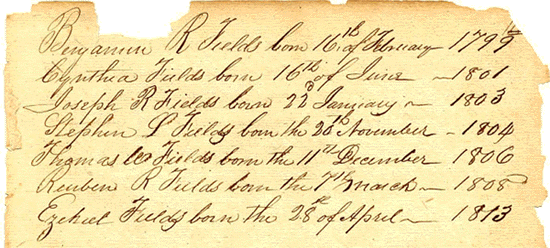 Benjamin R Fields born 16th of February 1799
Cynthia Fields born 16th of June 1801
Joseph R Fields born 22d January 1803
Stephen L Fields born the 20th November 1804
Thomas W Fields born the 11th December 1806
Reuben R Fields born the 7th march 1808
Ezekiel Fields born the 28th of April 1813